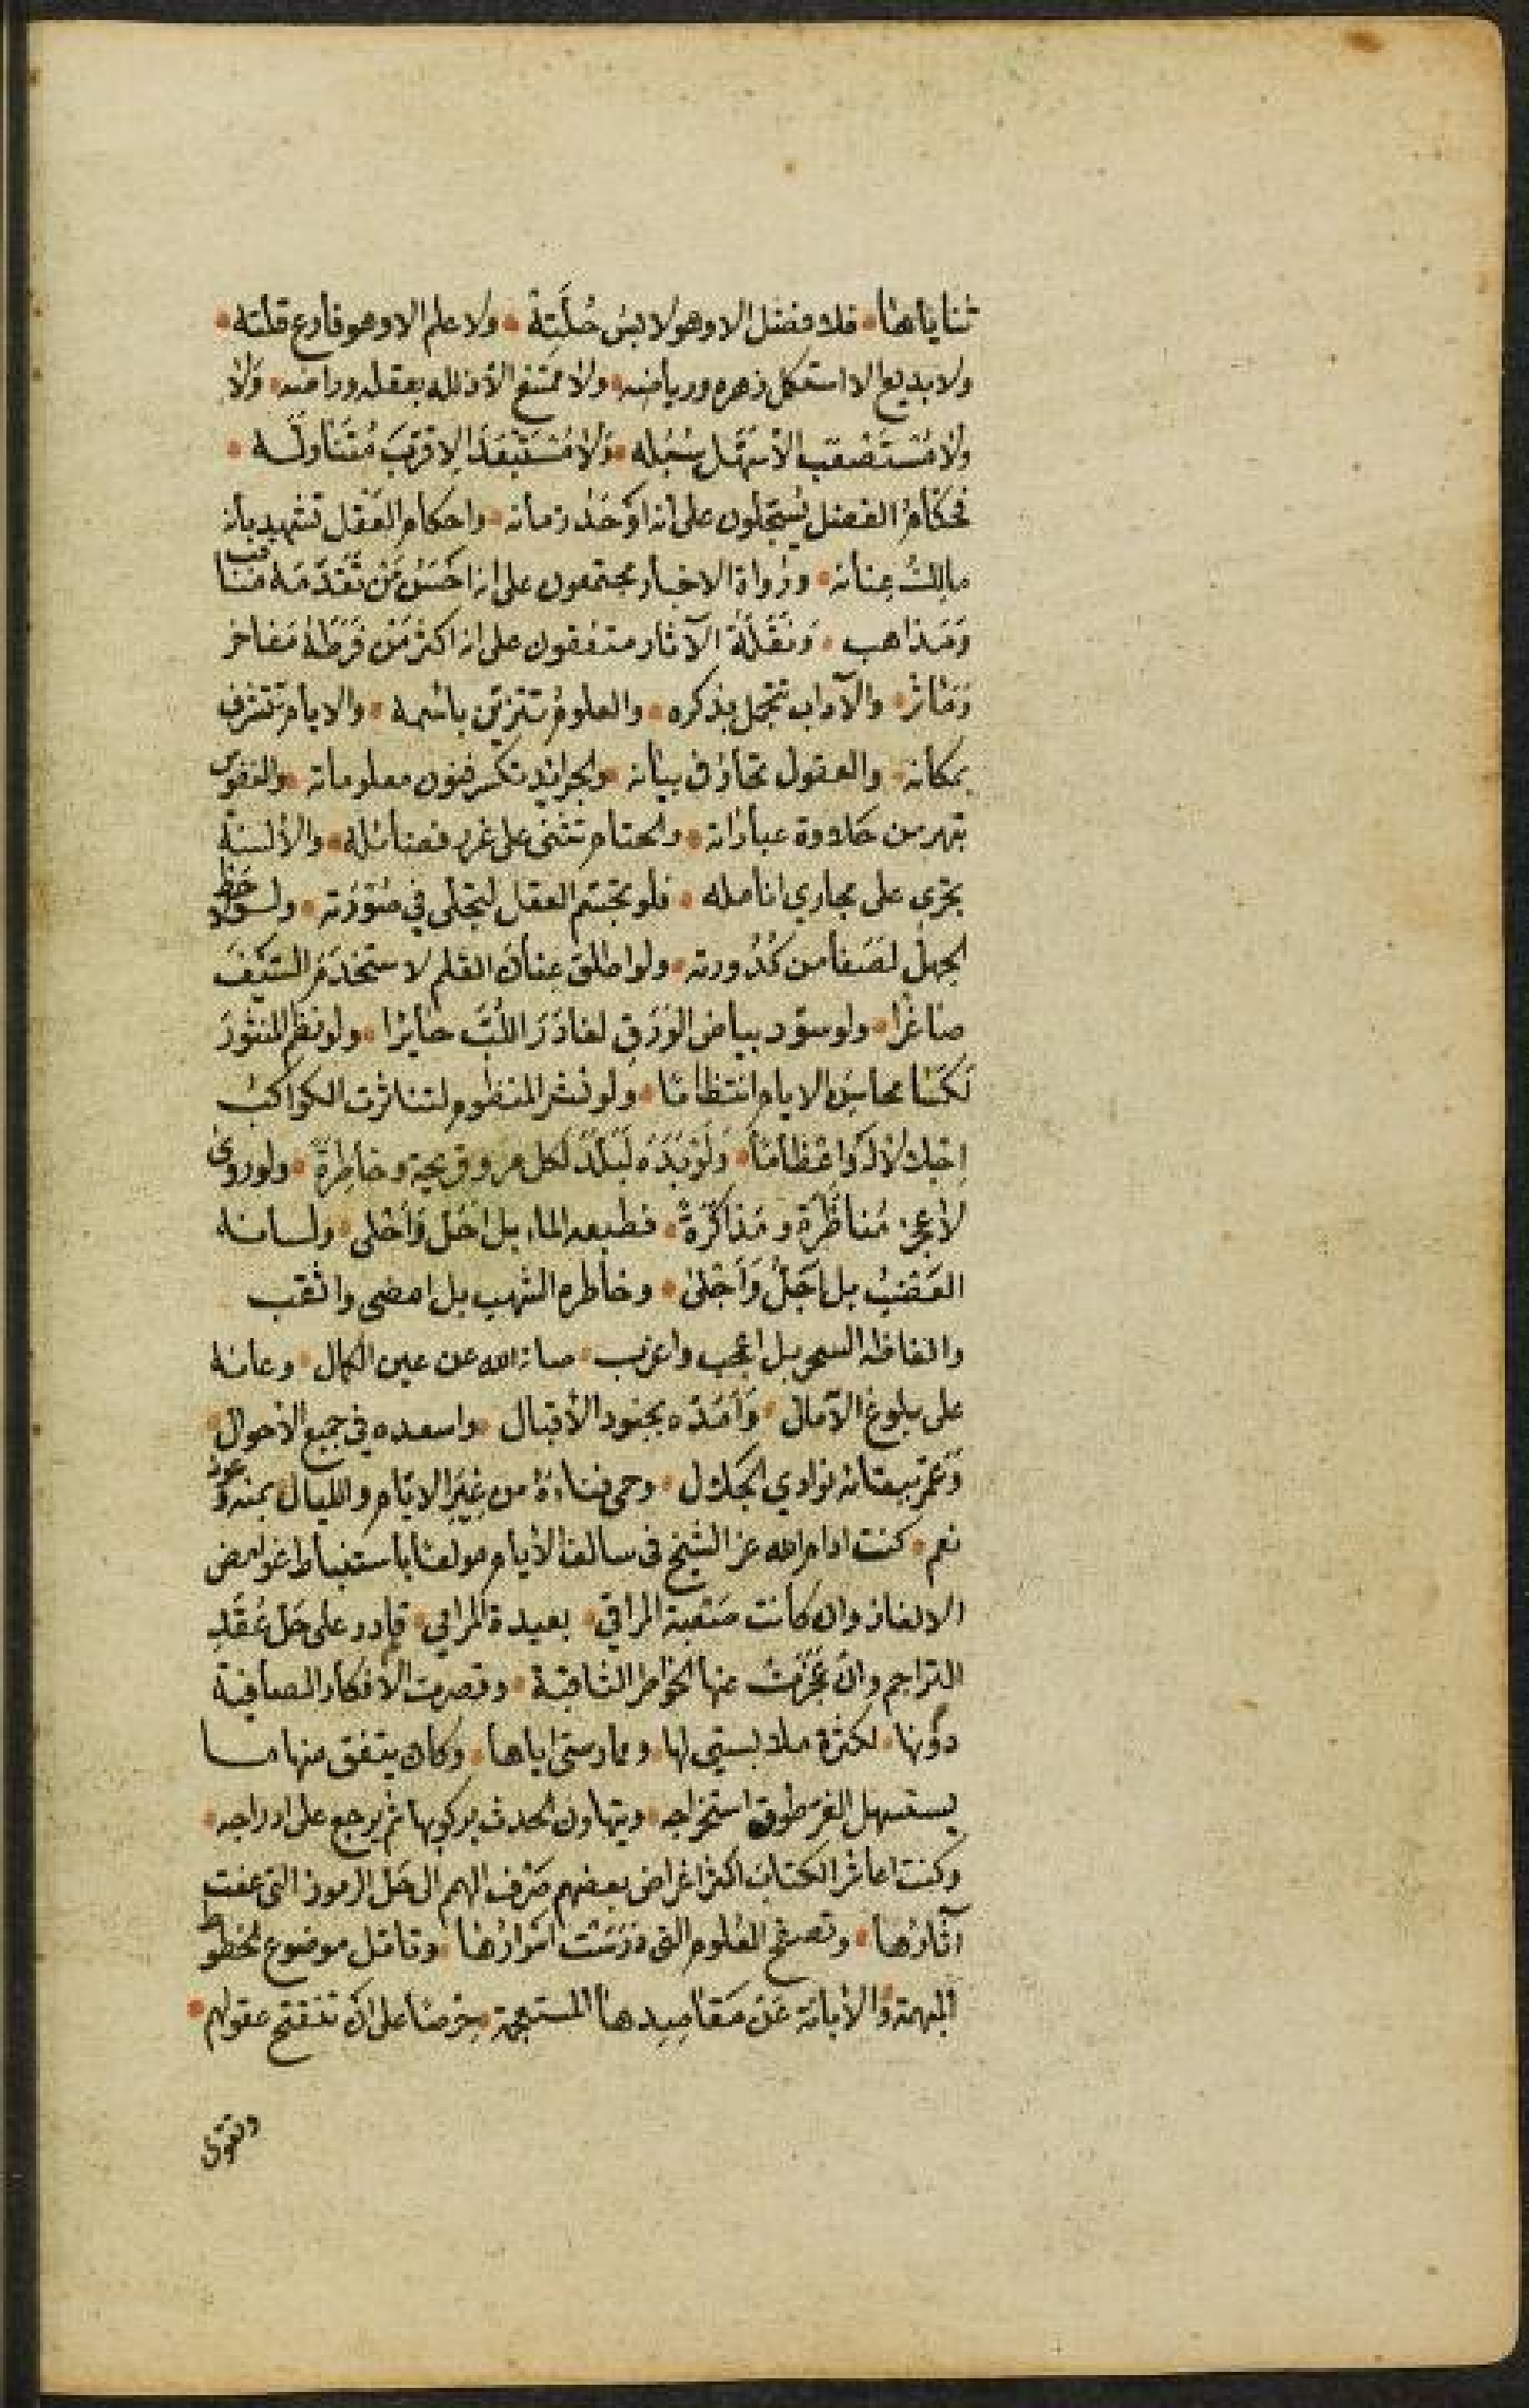 ثناياها • فلا فضل الا وهو لابس حُلَّيته • ولا علم الا وهو فارع قلته •
ولا بديع الا استكمل زهره ورياضه • ولا ممتنع الا ذلله بعقله وراضه • وَلا
ولا مُسْتَصْعَب الا سَهَّل سُبُله • وَلا مُسْتَبْعَدَ الا قرَّبَ مُتَناوله •
فحكّامُ الفضل يُسجّلون على انه اَوْحَدُ زمانه • واحكام العَقْل تشهد بانه
مالِكُ عِنانه • ورُواة الاخبار مجتمعون على انه احْسَنُ مَن تَقَدّمَه مَناقب
وَمَذاهب • وَنَقَلَةُ الآثار متفقون على انه اكثر مَنْ فَرَطَهُ مَفاخر
وَمَآثر • والآداب تتجمل بذكره • والعلومُ تتزيّن باسْمه • والايام تتشرف
بمكانه • والعقول تحارُ في بيانه • والجرائد تكسر فنون معلوماته • والنفوس
تبهر من حلاوة عباراته • والختام تثنى على غرر فضائله • والألسنة
تجْري على مجاري انامله • فلو تجسّم العقل لتجلّى في صُوْرَته • ولو لاحظ
الجهلُ لصَفا من كُدُورته • ولو اطلق عِنان القلم لاستخدَمَ السَّيْفَ
صَاغرا • ولو سوّد بياض الوَرَق لغادَرَ اللُّبَّ حَايرا • ولو نظم المنثورَ
لكسَا محاسِن الايام انتظامًا • ولو نثر المنظوم لتناثرت الكواكبُ
اِجْلالا لهُ وَاعْظامًا • وَلَوْ بَدَهَ لَبَلّدَ لكل مروّ قريحة وخاطِرة • ولو روى
لأعجز مُناظَرَة ومُذاكَرَةً • فطبعه الماء بل احْلُ وَاَحْلى • ولسانه
العَضْبُ بل اَجَلُّ وَاَجْلىٰ • وخاطره الشهب بل امضى واثقب
والفاظه السحر بل اعجب واغرب • صانه الله عن عين الكمال • وعانه
على بلوغ الآمال • وَاَمَدّه بجنود الأقبال • واسعده في جميع الأحوال •
وَعَمّر ببقائه نوادي الجَلال • وحمى فناءهُ من غِيَرِ الايّام والليال بمنه وعونه
نعم • كنت ادام الله عز الشيخ في سالف الأيام مولعًا باستنباط غوامض
الالغاز وان كانت صَعْبة المراقي • بعيدة المرامي • قادر على حَل عُقَدِ
التراجم وان عَجَزَتْ عنها الخواطر الثاقبة • وقصرت الأفكار الصافية
دونها • لكثرة ملابستي لها • وممارستى اياها • وكان يتفق منها ما
يستسهل الغر طرق استخراجه • ويتهاون الحدث بركوبها ثم يرجع على ادراجه •
وكنت اعاشر الكتاب اكثر اغراض بعضهم صَرْف الهم الى حَل الرموز التى عفت
آثارُها • وتصفح العُلوم التى دَرَسَت اسْرارُها • وتامل موضوع الخطوط
المبهمة وَالأبانة عَن مَقاصِدها المستعجمة • حِرصًا على ان تنفتح عقولهم •
وتقوى